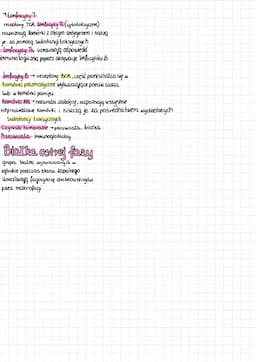 → Limfocyty T:
receptory TCR, Limfocyty Tc (cytotoksyczne)
rozpoznają komórki z obcym antygenem i niszczą
je za pomocą substancji toksycznych
Limfocyty Th wzmacniają odpowiedź
immunologiczną poprzez aktywacje limfocytów B
Limfocyty B → receptory BCR, część przekształca się w
komórki plazmatyczne wytwarzające przeciwciała
lub w komórki pamięci
Komórki NK → naturalni zabójcy, rozpoznają wszystkie
nieprawidłowe komórki i niszczą je za pośrednictwem wydzielanych
substancji toksycznych
Czynniki humoralne → przeciwciała, białka
Przeciwciała - immunoglobuliny
Białka ostrej fazy
grupa białek wytwarzanych w
wątrobie podczas stanu zapalnego
umożliwiają fagocytozę drobnoustrojów
przez makrofagi